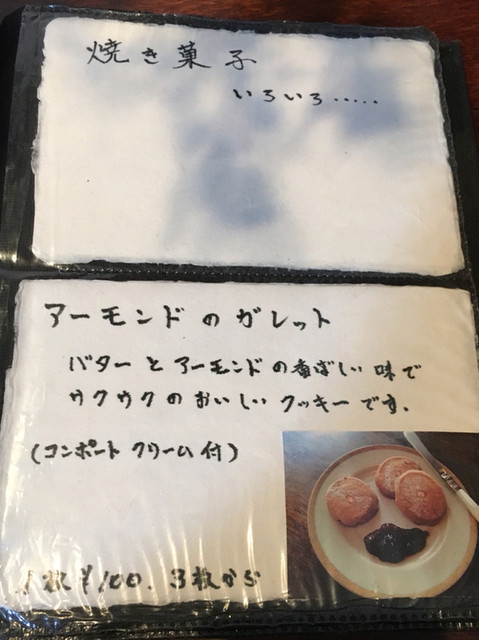 焼き菓子
いろいろ.....
アーモンドのガレット
バターとアーモンドの香ばしい味で
ウクウクのおいしいクッキーです.
(コンポート クリーム付)
1枚¥100. 3枚から